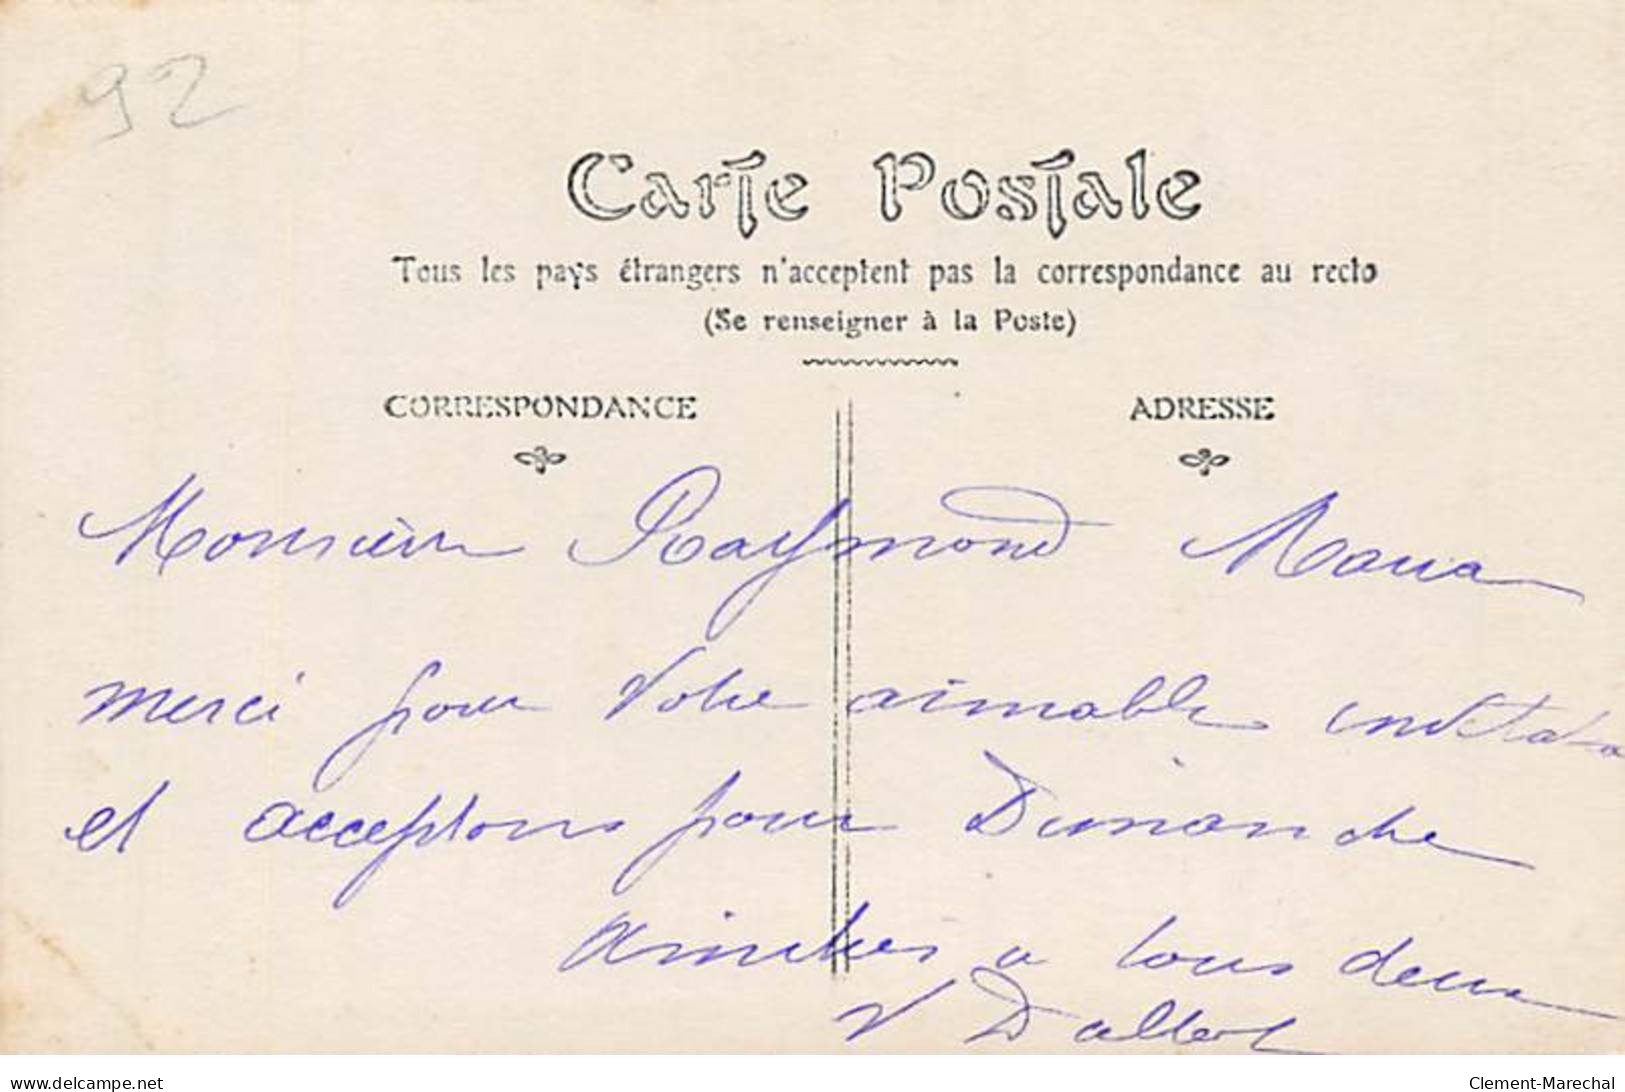 92
Carte Postale
Tous les pays étrangers n'acceptent pas la correspondance au recto
(Se renseigner à la Poste)
CORRESPONDANCE
ADRESSE
Monsieur Raymond
merci pour Votre aimable
et acceptons pour Dimanche
a tous deux
V
delcampe.net
Clement-Marechal